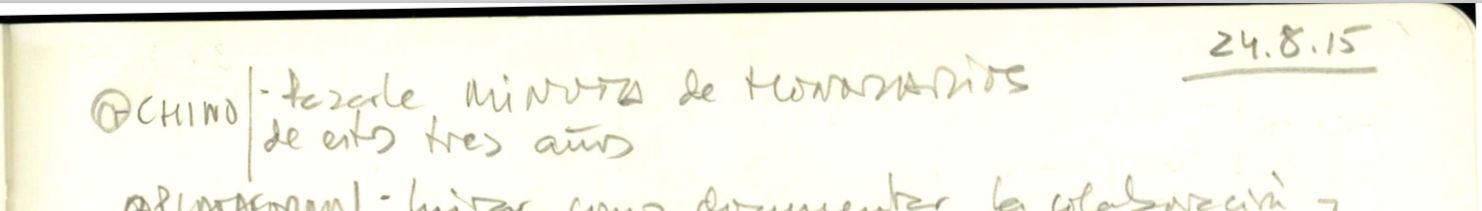 24.8.15
⊕ CHINO | - pasarle MINUTA de HONORARIOS
de estos tres años
- mirar como documentar la colaboración y